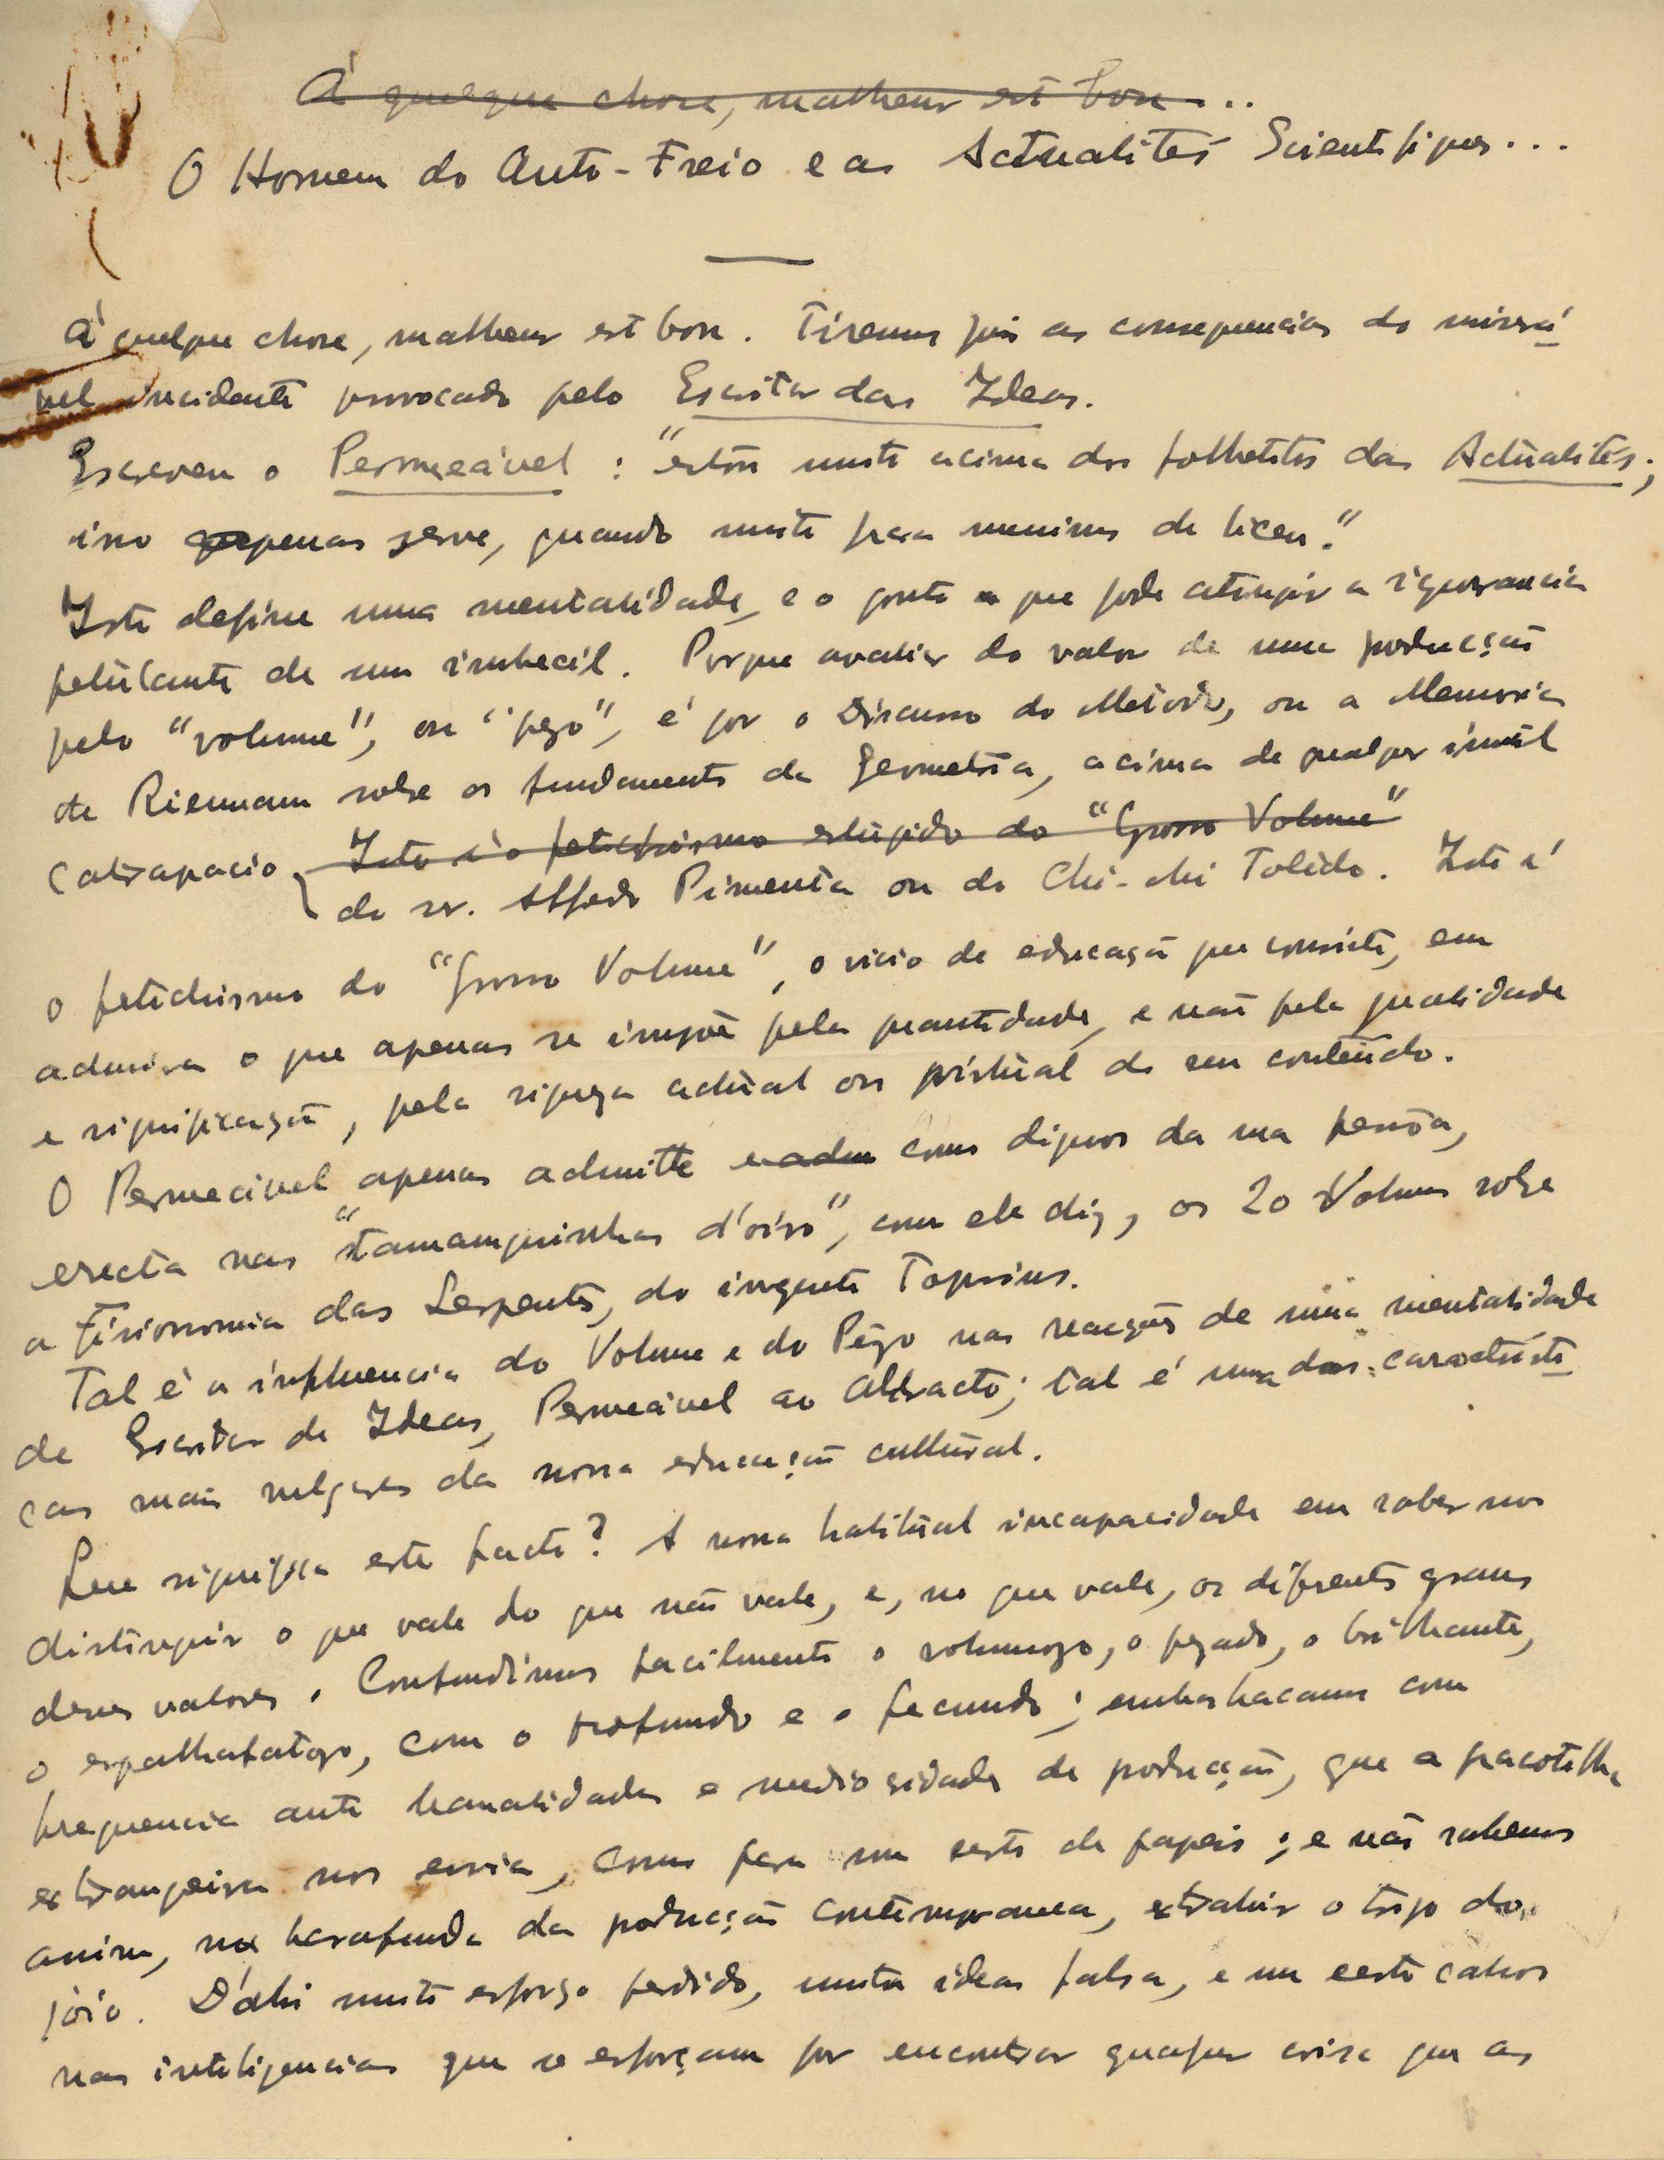 À quelque chose, malheur est bon...
O Homem do Auto-Freio e as Actualités Scientifiques...
À quelque chose, malheur est bon. Tiremos pois as consequencias do miserá
vel incidente provocado pelo Escritor das Ideas.
Escreveu o Permeável : "estou muito acima dos folhetitos das Actualités;
isso apenas serve, quando muito para meninos de liceu."
Isto define uma mentalidade, e o ponto a que pode atingir a ignorancia
petulante de um imbecil. Porque avaliar do valor de uma producção
pelo "volume", ou "pezo", é pôr o Discurso do Metodo, ou a Memoria
de Riemann sobre os fundamentos da Geometria, acima de qualquer inutil
catrapacio Isto é o fetichismo estupido do "Grosso Volume"
do sr. Alfredo Pimenta ou do Chi-chi Toledo. Isto é
o fetichismo do "Grosso Volume", o vicio de educação que consiste, em
admirar o que apenas se impõe pela quantidade, e não pela qualidade
e significação, pela riqueza actual ou virtual do seu conteúdo.
O Permeável apenas admitte como dignos da sua pessôa,
erecta nas "tamanquinhas d'oiro", como ele diz, os 20 Volumes sobre
a Fisionomia das Serpentes, do ingente Topsius.
Tal é a influencia do Volume e do Pêzo nas reacções de uma mentalidade
de Escritor de Ideas, Permeável ao Abstracto; tal é uma das caracteristi
cas mais vulgares da nossa educação cultural.
Que significa este facto? A nossa habitual incapacidade em saber-mos
distinguir o que vale do que não vale, e, no que vale, os diferentes graus
desses valores. Confundimos facilmente o volumozo, o pezado, o brilhante,
o espalhafatozo, com o profundo e o fecundo; embasbacamos com
frequencia ante banalidades e mediocridades de producção, que a pacotilha
extrangeira nos envia, como para um cesto de papeis; e não sabemos
assim, na barafunda da producção contemporanea, extrahir o trigo do
jôio. D'ahi muito esforço perdido, muita idea falsa, e um certo cahos
nas inteligencias que se esforçam por encontrar qualquer coisa que as